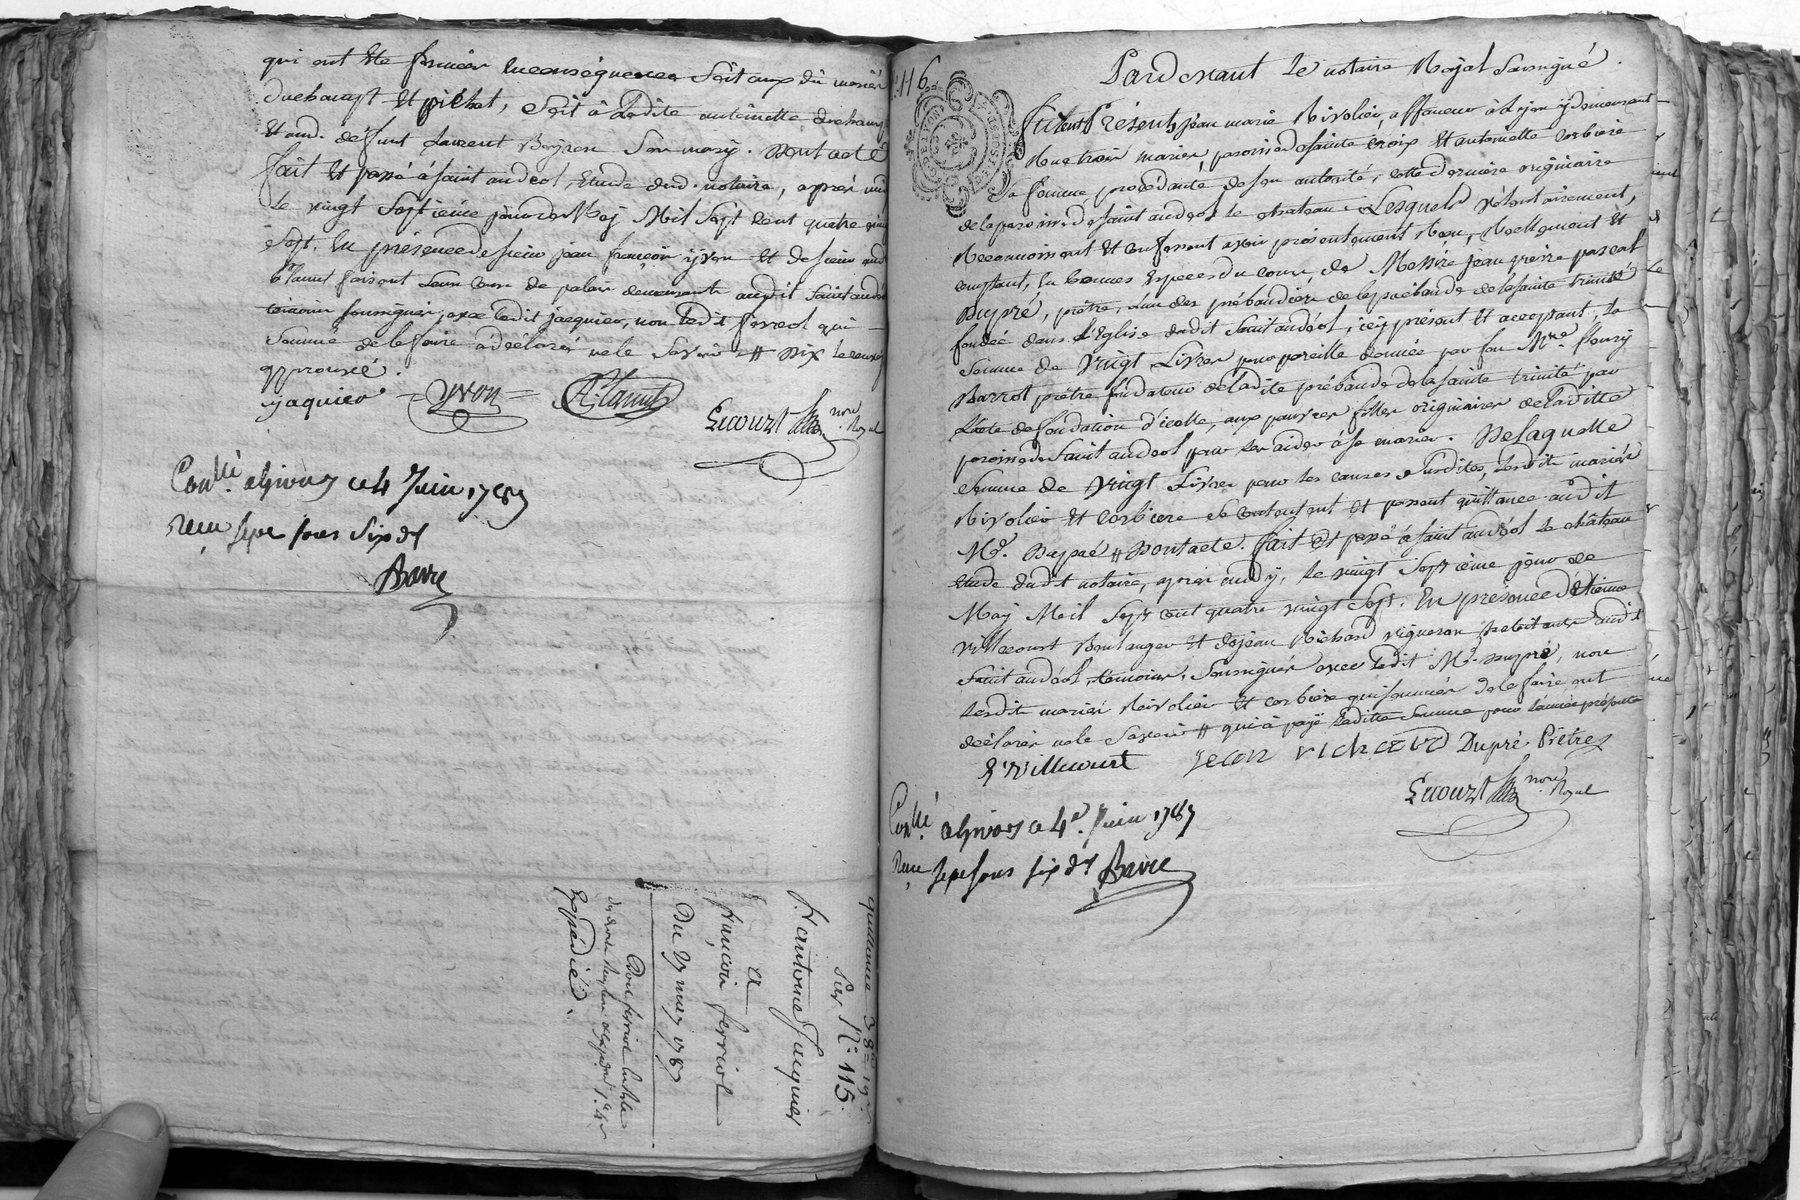 qui ont été former en conséquence soit aux dits mariés
Duchamp et pichat, soit à ladite antoinette duchamp
et aud. defunt Laurent Boyron son mary. Dont acte
fait et passé à saint andeol, étude dud. notaire, après midi
le vingt septieme jour de May Mil sept cent quatre vingt
sept. En présence de sieur jean françois yvon et de sieur
faisant leur cour de palais demeurants audit saint andeol
témoins soussignés, avec ledit jacquier, non ledit ferreol qui
sommé de le faire a déclaré ne le savoir # Dix
approuvé.
jaquier yvon
Ecouzt nore. Royal
Conllé a Givors ce 4 Juin 1787
Recu sept sous six drs
Barre
quittance 38lt 19s
Sur N.° 115.
antoine Jacquier
a
françois ferriol
Du 27 may 1787
Expédiée.
116
Pardevant le notaire Royal soussigné.
Furent Présents, jean marie Rivolier, affaneur à Lyon y demeurant
Rue trois maries paroisse de sainte croix et antoinette corbiere
sa femme, procédante de son autorité, cette derniere originaire
de la paroisse de saint andeol le chateau. Lesquels volontairement,
Reconnoissent et confessent avoir présentement Reçu, Réellement et
comptant, en bonnes especes du cours, de Messire jean pierre pascal
Dupré, prêtre, l'un des prébandiers de la prébande de la sainte trinité
fondée dans l'Eglise dudit saint andéol, icy présent et acceptant, la
somme de Vingt Livres pour pareille donnée par feu Mre fleury
Barrot prêtre fondateur de ladite prébande de la sainte trinité par
l'acte de fondation d'icelle, aux pauvres filles originaires de laditte
paroisse de saint andeol pour les aider à se marier. De laquelle
somme de Vingt Livres pour les causes susdites, lesdits mariés
Rivolier et corbiere se contentent et passent quittance audit
Mr. Dupré # Dont acte. fait et passé à saint andéol le château
étude dudit notaire, après midy, le vingt septieme jour de
May Mil sept cent quatre vingt sept. En présence d'étienne
villecourt Boulanger et de jean Richard vigneron habitants audit
saint andéol, témoins, soussignés avec ledit Mr. Dupré, non
lesdits mariés Rivolier et corbiere qui sommés de le faire ont
déclarés ne le savoir # qui à payé laditte somme pour l'année présente
E Villecourt jean richard Dupré Prêtre
Ecouzt nore. Royal
Conllé a Givors ce 4e. Juin 1787
Recu sept sous six drs Barre